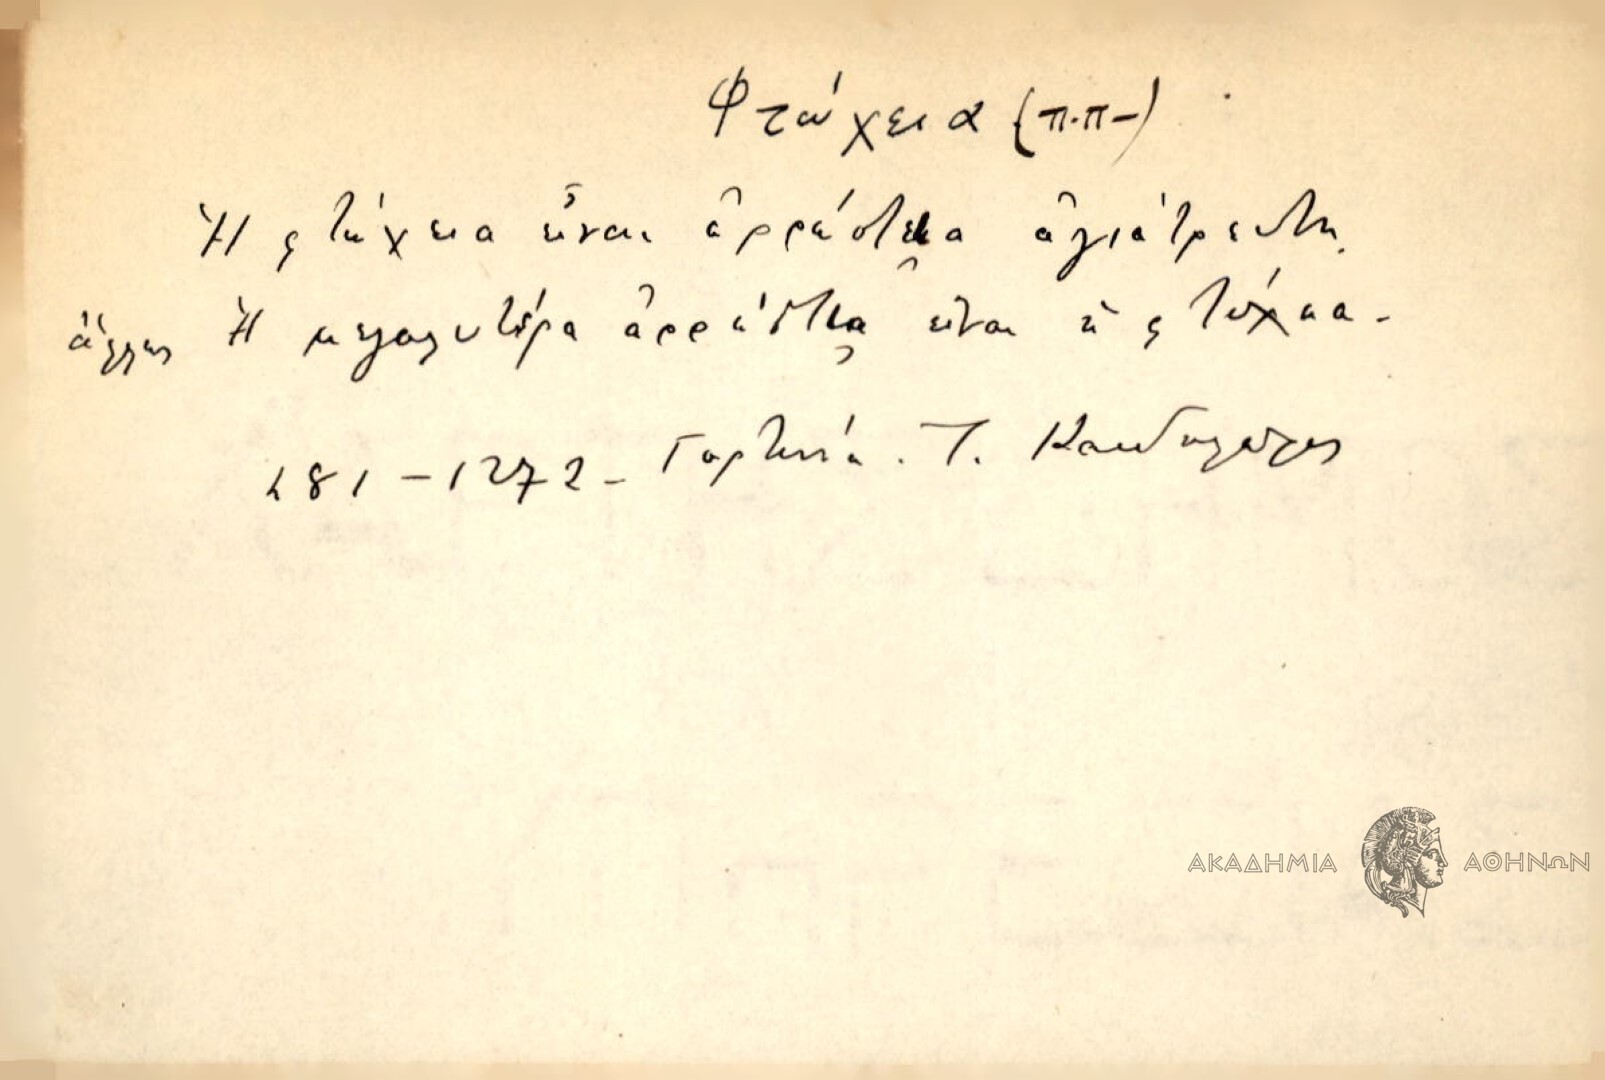 Φτώχεια (π.π-)
Ἡ φτώχεια εἶναι ἀρρώστεια ἀγιάτρευτη.
ἄλλως Ἡ μεγαλυτέρα ἀρρώστια εἶναι ἡ φτώχεια -
281 - 1272 - Γορτυνία. Τ. Κανδηλῶρος
ΑΚΑΔΗΜΙΑ ΑΘΗΝΩΝ